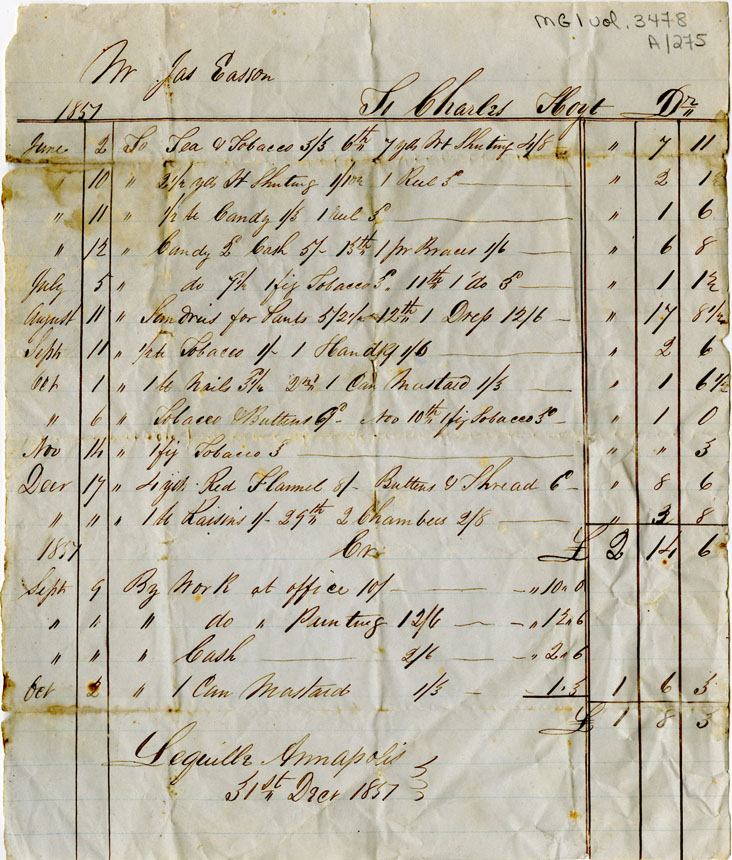 MG1 vol. 3478
A/275
Mr Jas Easson
1857 To Charles Hoyt Dr
June 2 To Tea & Tobacco 3/3 6th 7 yds Wt Shirting 4/8 " 7 11
" 10 " 2 1/2 yds St Shirting 1 Reel 3d " 2 1 1/2
" 11 " 1/2 lb Candy 1/3 1 reel 3d " 1 6
" 12 " Candy 2d Cash 5/- 13th 1 pr Braces 1/6 " 6 8
July 5 " do 1 fig Tobacco 3d 11th 1 do 3d " 1 1 1/2
August 11 " Sundries for Pants 5/2 1/2 12th 1 Dress 12/6 " 17 8 1/2
Sept 11 " 1/2 lb Tobacco 1/- 1 Handkf 1/6 " 2 6
Oct 1 " 1 lb Nails 3 1/2 2nd 1 Can Mastard 1/3 " 1 6 1/2
" 6 " Tobacco & Buttins 9d Nov 10th 1 fig Tobacco 3d " 1 0
Nov 14 " 1 fig Tobacco 3 " " 3
Decr 17 " 4 yds Red Flannel 8/- Buttins & Thread 6d " 8 6
" " " 1 lb Raisins 1/- 29th 2 Chambers 2/8 " 3 8
1857 Cr £ 2 14 6
Sept 9 By Work at office 10/- " 10 " 0
" " " do " Punting 12/6 " 12 " 6
" " " Cash 2/6 " 2 " 6
Oct 2 " 1 Can Mastard 1/3 1.3 1 6 3
£ 1 8 3
Lequille Annapolis
31st Decr 1857